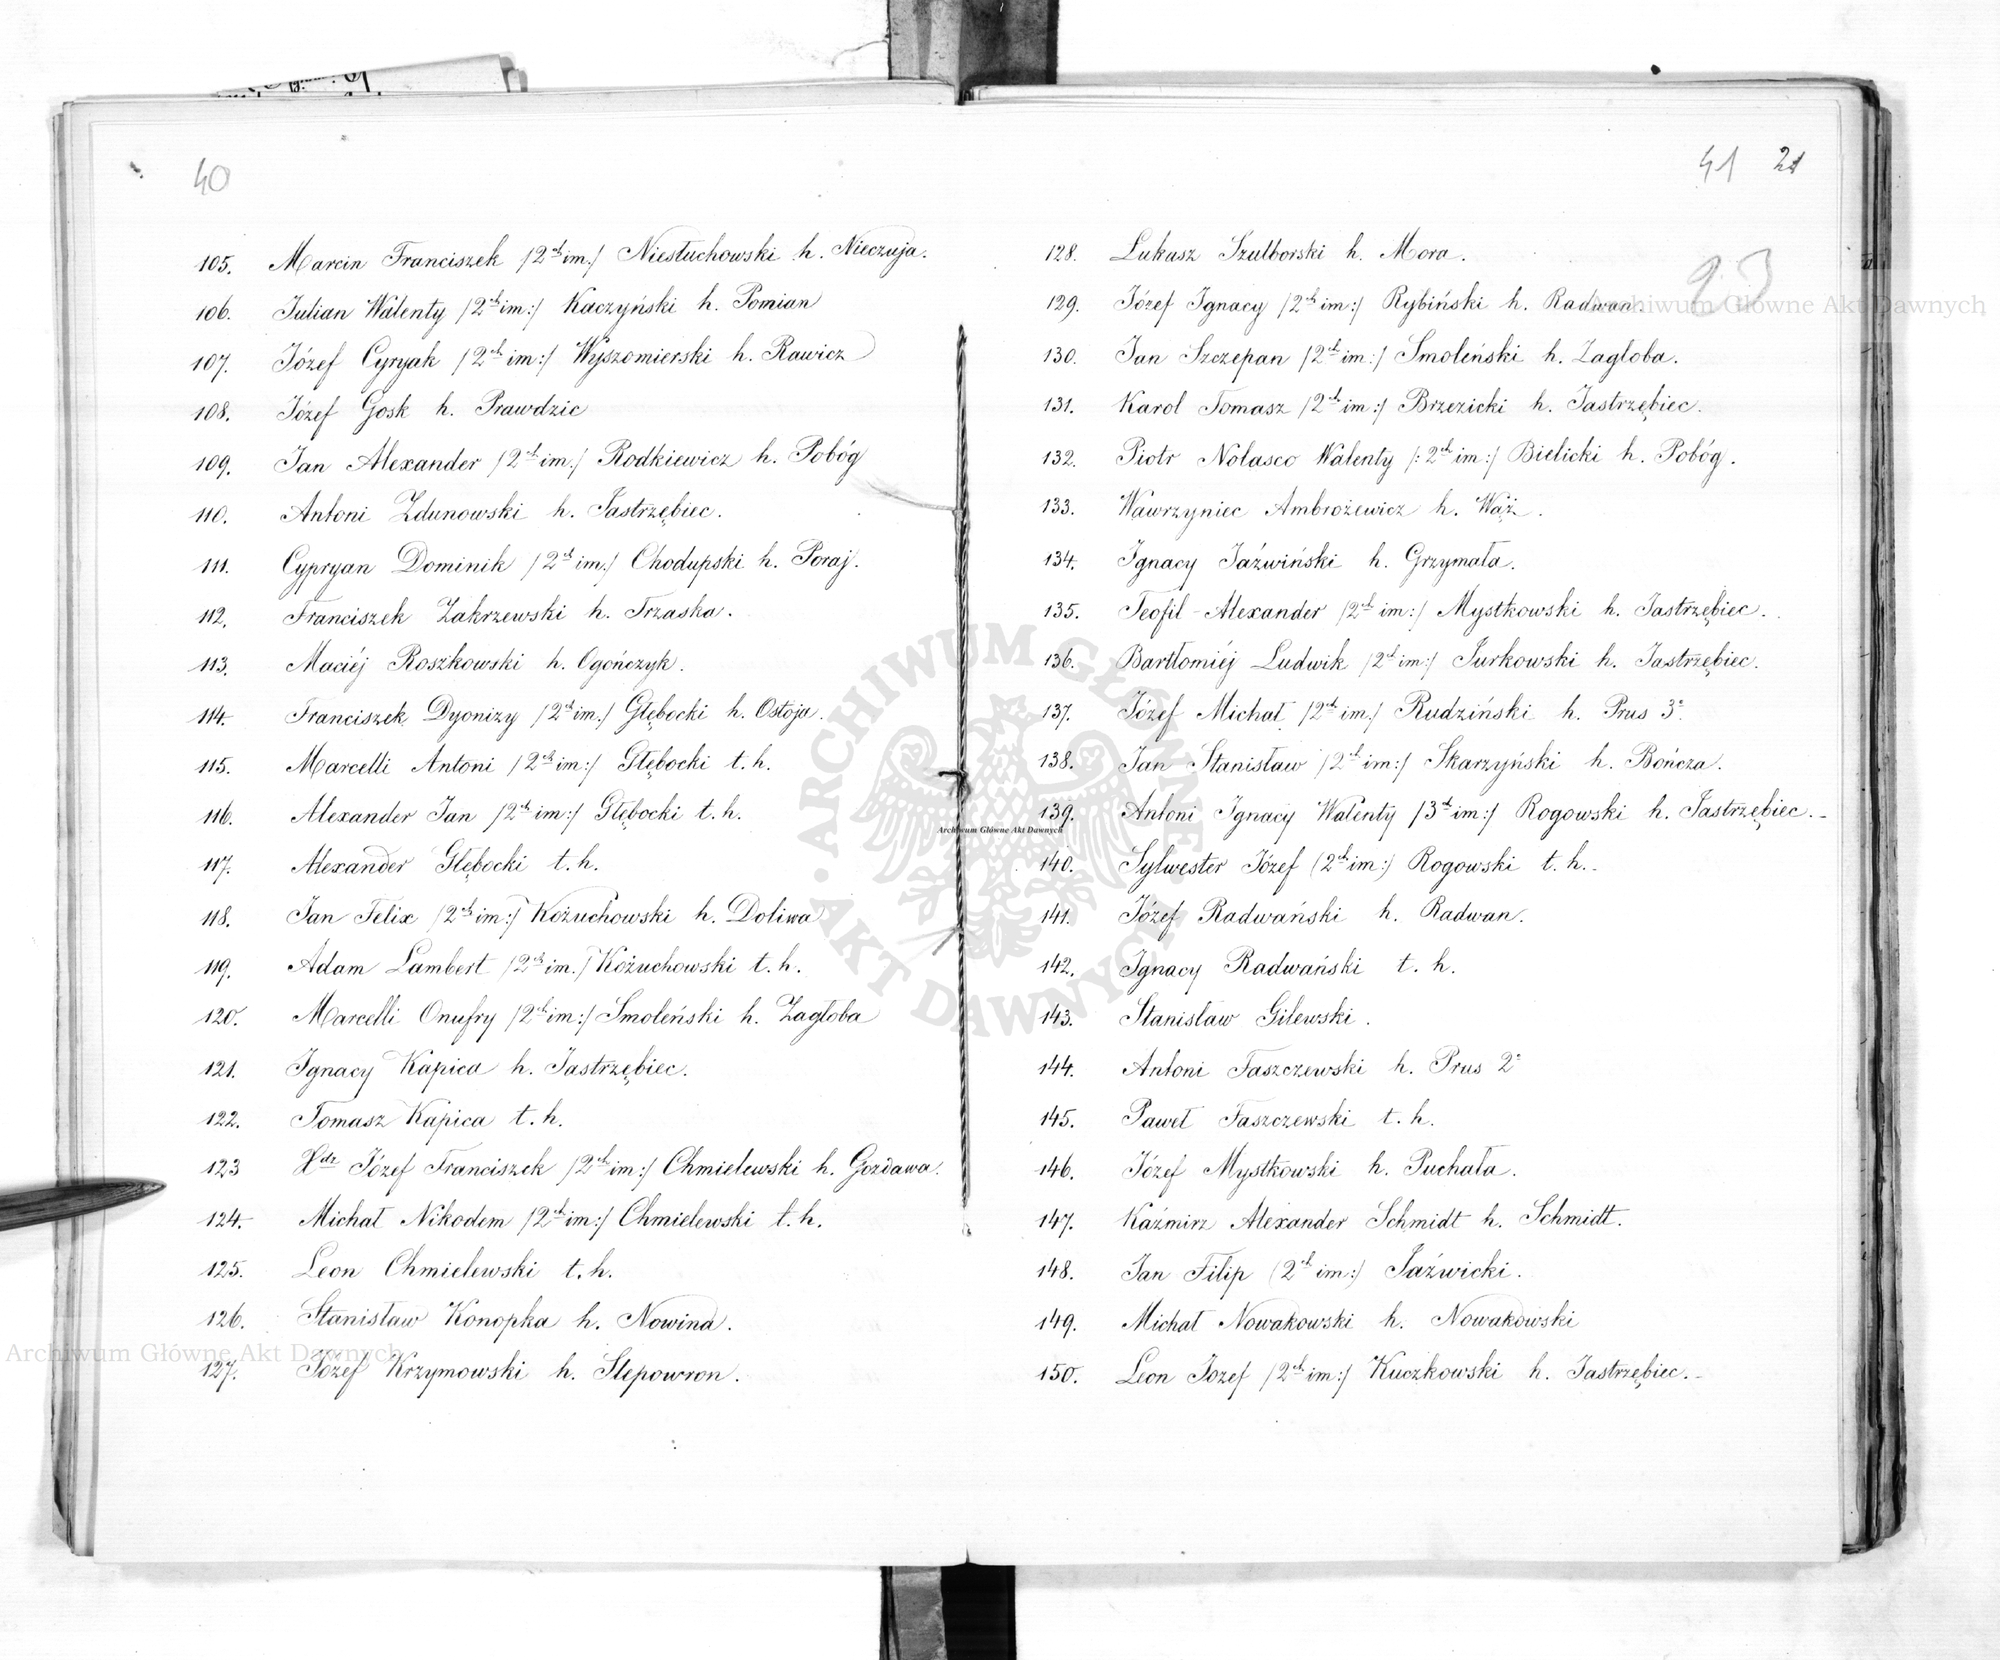 40
105. Marcin Franciszek /2ch im./ Niesłuchowski h. Nieczuja.
106. Julian Walenty /2ch im:/ Kaczyński h. Pomian
107. Józef Cyryak /2ch im:/ Wyszomierski h. Rawicz
108. Józef Gosk h. Prawdzic
109. Jan Alexander /2ch im./ Rodkiewicz h. Pobóg
110. Antoni Zdunowski h. Jastrzębiec.
111. Cypryan Dominik /2ch im./ Chodupski h. Poraj.
112. Franciszek Zakrzewski h. Trzaska.
113. Maciéj Roszkowski h. Ogończyk.
114. Franciszek Dyonizy /2ch im./ Głębocki h. Ostoja.
115. Marcelli Antoni /2ch im:/ Głębocki t. h.
116. Alexander Jan /2ch im:/ Głębocki t. h.
117. Alexander Głębocki t. h.
118. Jan Felix /2ch im:/ Kożuchowski h. Doliwa
119. Adam Lambert /2ch im./ Kożuchowski t. h.
120. Marcelli Onufry /2ch im:/ Smoleński h. Zagłoba
121. Ignacy Kapica h. Jastrzębiec.
122. Tomasz Kapica t. h.
123 Xdz Józef Franciszek /2ch im:/ Chmielewski h. Gozdawa.
124. Michał Nikodem /2ch im:/ Chmielewski t. h.
125. Leon Chmielewski t. h.
126. Stanisław Konopka h. Nowina.
127. Józef Krzymowski h. Slepowron.
41 21
23
128. Łukasz Szulborski h. Mora.
129. Józef Ignacy /2ch im:/ Rybiński h. Radwan.
130. Jan Szczepan /2ch im:/ Smoleński h. Zagłoba.
131. Karol Tomasz /2ch im:/ Brzezicki h. Jastrzębiec.
132. Piotr Nolasco Walenty /:2ch im:/ Bielicki h. Pobóg.
133. Wawrzyniec Ambrożewicz h. Wąż.
134. Ignacy Jaźwiński h. Grzymała.
135. Teofil-Alexander /2ch im:/ Mystkowski h. Jastrzębiec.
136. Bartłomiéj Ludwik /2ch im:/ Jurkowski h. Jastrzębiec.
137. Józef Michał /2ch im./ Rudziński h. Prus 3º.
138. Jan Stanisław /2ch im:/ Skarzyński h. Bończa.
139. Antoni Ignacy Walenty /3ch im:/ Rogowski h. Jastrzębiec.-
140. Sylwester Józef (2ch im:) Rogowski t. h.-
141. Józef Radwański h. Radwan.
142. Ignacy Radwański t. h.
143. Stanisław Gilewski.
144. Antoni Faszczewski h. Prus 2º
145. Paweł Faszczewski t. h.
146. Józef Mystkowski h. Puchała.
147. Kaźmirz Alexander Schmidt h. Schmidt.
148. Jan Filip (2ch im:) Jaźwicki.
149. Michał Nowakowski h. Nowakowski
150. Leon Jozef /2ch im:/ Kuczkowski h. Jastrzębiec.-
Archiwum Główne Akt Dawnych
ARCHIWUM GŁÓWNE
AKT DAWNYCH
Archiwum Główne Akt Dawnych
Archiwum Główne Akt Dawnych